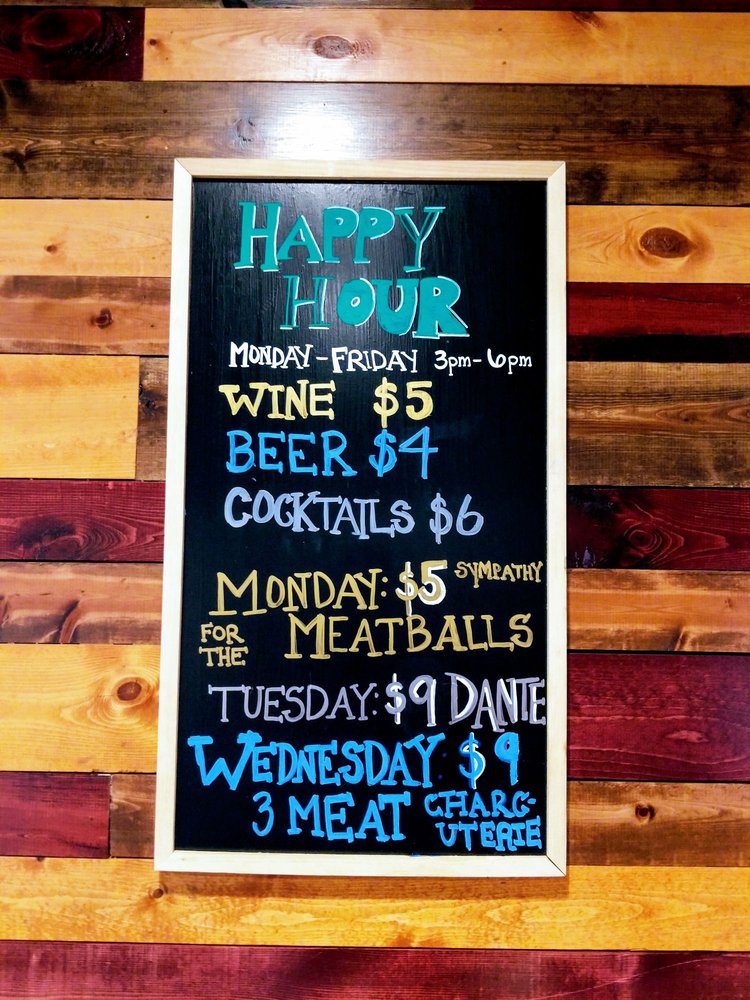 HAPPY
HOUR
MONDAY-FRIDAY 3pm-6pm
WINE $5
BEER $4
COCKTAILS $6
MONDAY: $5 SYMPATHY
FOR THE MEATBALLS
TUESDAY: $9 DANTE
WEDNESDAY: $9
3 MEAT CHARC-
UTERIE